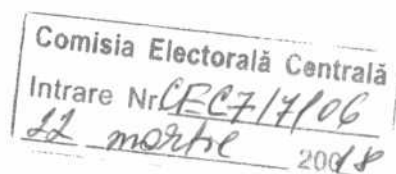 Comisia Electorală Centrală
Intrare Nr. CEC7/7106
22 martie 2018